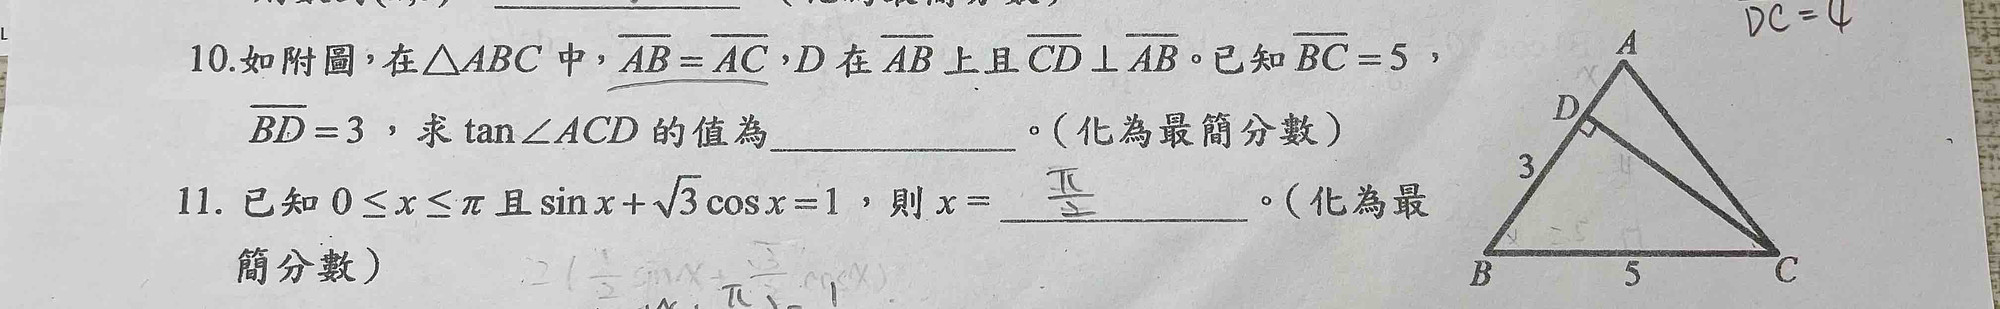 DC = 4
10.如附圖，在△ABC 中，AB = AC，D 在 AB 上且 CD ⊥ AB。已知 BC = 5，
BD = 3，求 tan∠ACD 的值為＿＿＿＿＿＿。(化為最簡分數)
11. 已知 0 ≤ x ≤ π 且 sin x + √3 cos x = 1，則 x = π/2。(化為最
簡分數)
A
D
3
B
5
C